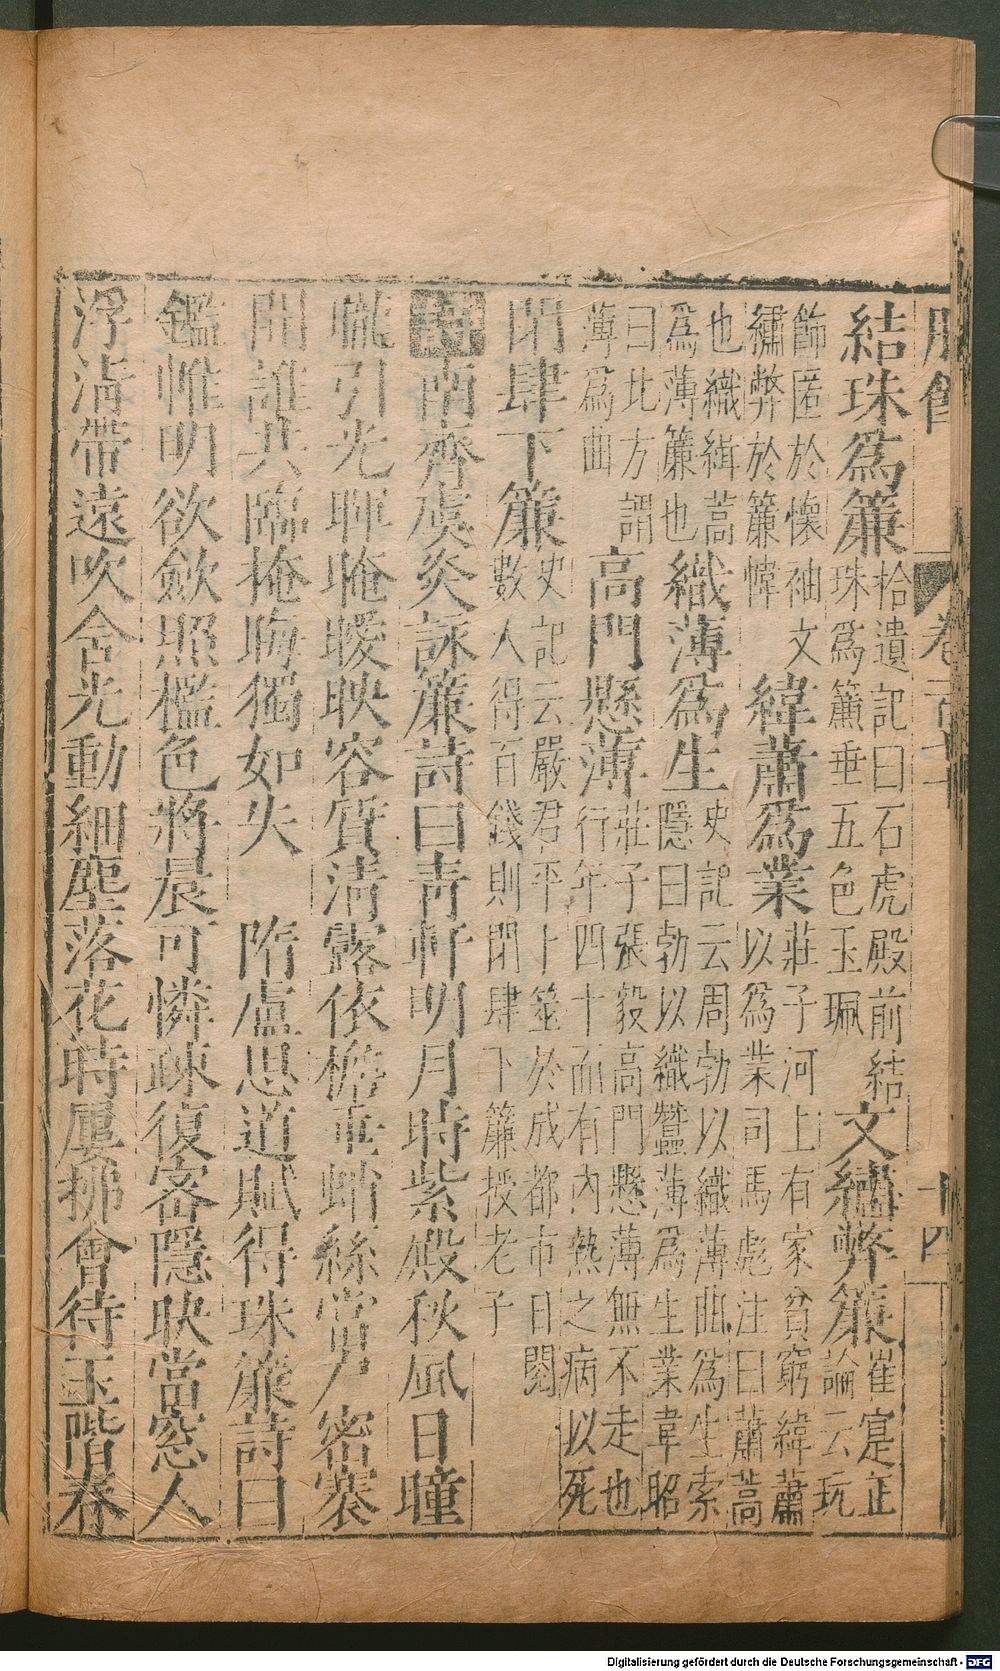 結珠爲簾拾遺記曰石虎殿前結珠爲簾垂五色玉珮 文繡弊簾崔寔正論云玩
飾匿於懷袖文繡弊於簾幃 緯蕭爲業莊子河上有家貧窮緯蕭以爲業司馬彪注曰蕭蒿
也織緝蒿爲薄簾也 織薄爲生史記云周勃以織薄曲爲生索隱曰勃以織蠶薄爲生業韋昭
曰北方謂薄爲曲 高門懸薄莊子張毅高門懸薄無不走也行年四十而有內熱之病以死
閉肆下簾史記云嚴君平卜筮於成都市日閱數人得百錢則閉肆下簾授老子
詩南齊虞炎詠簾詩曰青軒明月時紫殿秋風日曈
曨引光暉晻曖映容質清露依檐垂蛸絲當戶密褰
開誰共臨掩晦獨如失 隋盧思道賦得珠簾詩曰
鑑帷明欲斂照檻色將晨可憐疎復密隱映當窓人
浮清帶遠吹含光動細塵落花時屢拂會待玉階春
卷
十四
Digitalisierung gefördert durch die Deutsche Forschungsgemeinschaft - DFG